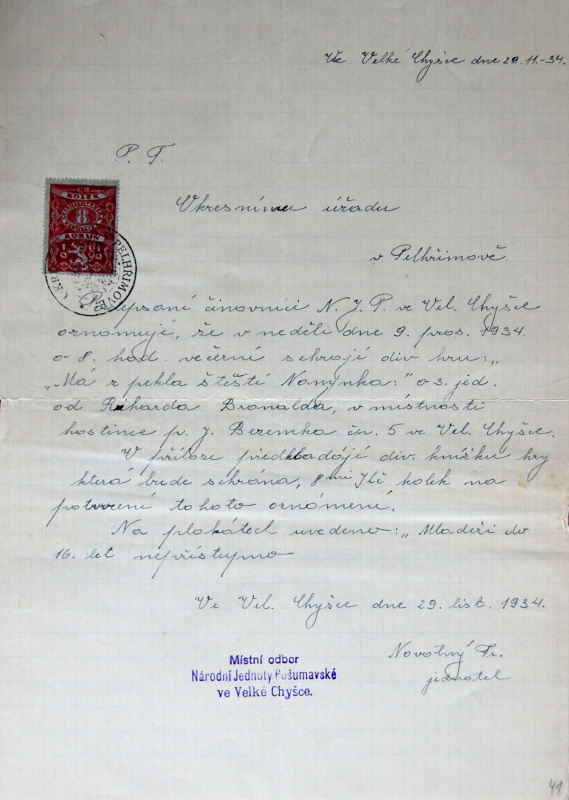 Ve Velké Chyšce dne 29.11.-34.
P. T.
Okresnímu úřadu
v Pelhřimově
KOLEK
8
KORUN
PELHŘIMOV
Nížepsaní činovníci N. J. P. ve Vel. Chyšce
oznamují, že v neděli dne 9. pros. 1934
o 8. hod. večerní sehrají div. hru: „
„Má z pekla štěstí Nanynka:" o 3. jed.
od Richarda Bronalda, v místnosti
hostince p. J. Bezemka čp. 5 ve Vel. Chyšce.
V příloze předkládají div. knížku hry
která bude sehrána, 8 mi Kč kolek na
potvrzení tohoto oznámení.
Na plakátech uvedeno: „Mládeži do
16. let nepřístupno
Ve Vel. Chyšce dne 29. list. 1934.
Novotný Fr.
jednatel
Místní odbor
Národní Jednoty Pošumavské
ve Velké Chyšce.
41